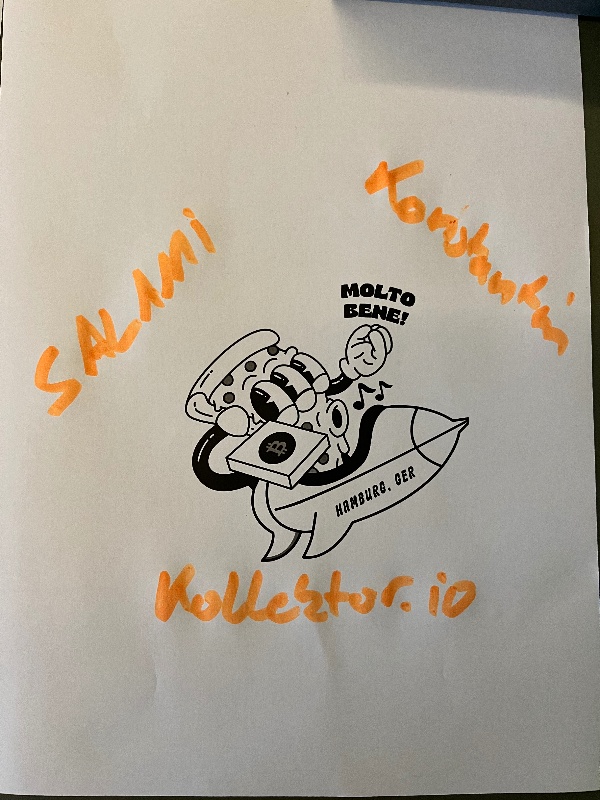 SALAMI
Konstantin
MOLTO
BENE!
₿
HAMBURG, GER
Kollektor.io